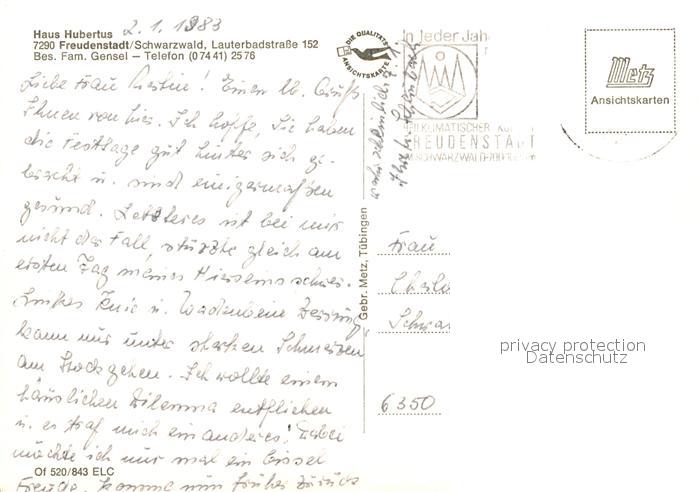 Haus Hubertus 2.1.1983
7290 Freudenstadt/Schwarzwald, Lauterbadstraße 152
Bes. Fam. Gensel – Telefon (07441) 2576
Liebe Frau ! Einen lb. Gruß
Ihnen von hier. Ich hoffe, Sie haben
die Festtage gut hinter sich ge-
bracht u. sind einigermaßen
gesund. Letzteres ist bei mir
nicht der Fall, stürzte gleich am
ersten Tag meines Hierseins schwer.
Linkes Knie u. Wadenbein Zerrung
kann nur unter starken Schmerzen
am Stock gehen. Ich wollte einem
häuslichen Dilemma entfliehen
u. es traf mich ein anderes! Dabei
möchte ich nur mal ein bissel
Freude. Komme nun früher zurück
Of 520/843 ELC
wahrscheinlich
Gebr. Metz, Tübingen
DIE QUALITÄTS
ANSICHTSKARTE
in jeder Jah
HEILKLIMATISCHER
FREUDENSTADT
SCHWARZWALD
Metz
Ansichtskarten
Frau
6350
privacy protection
Datenschutz